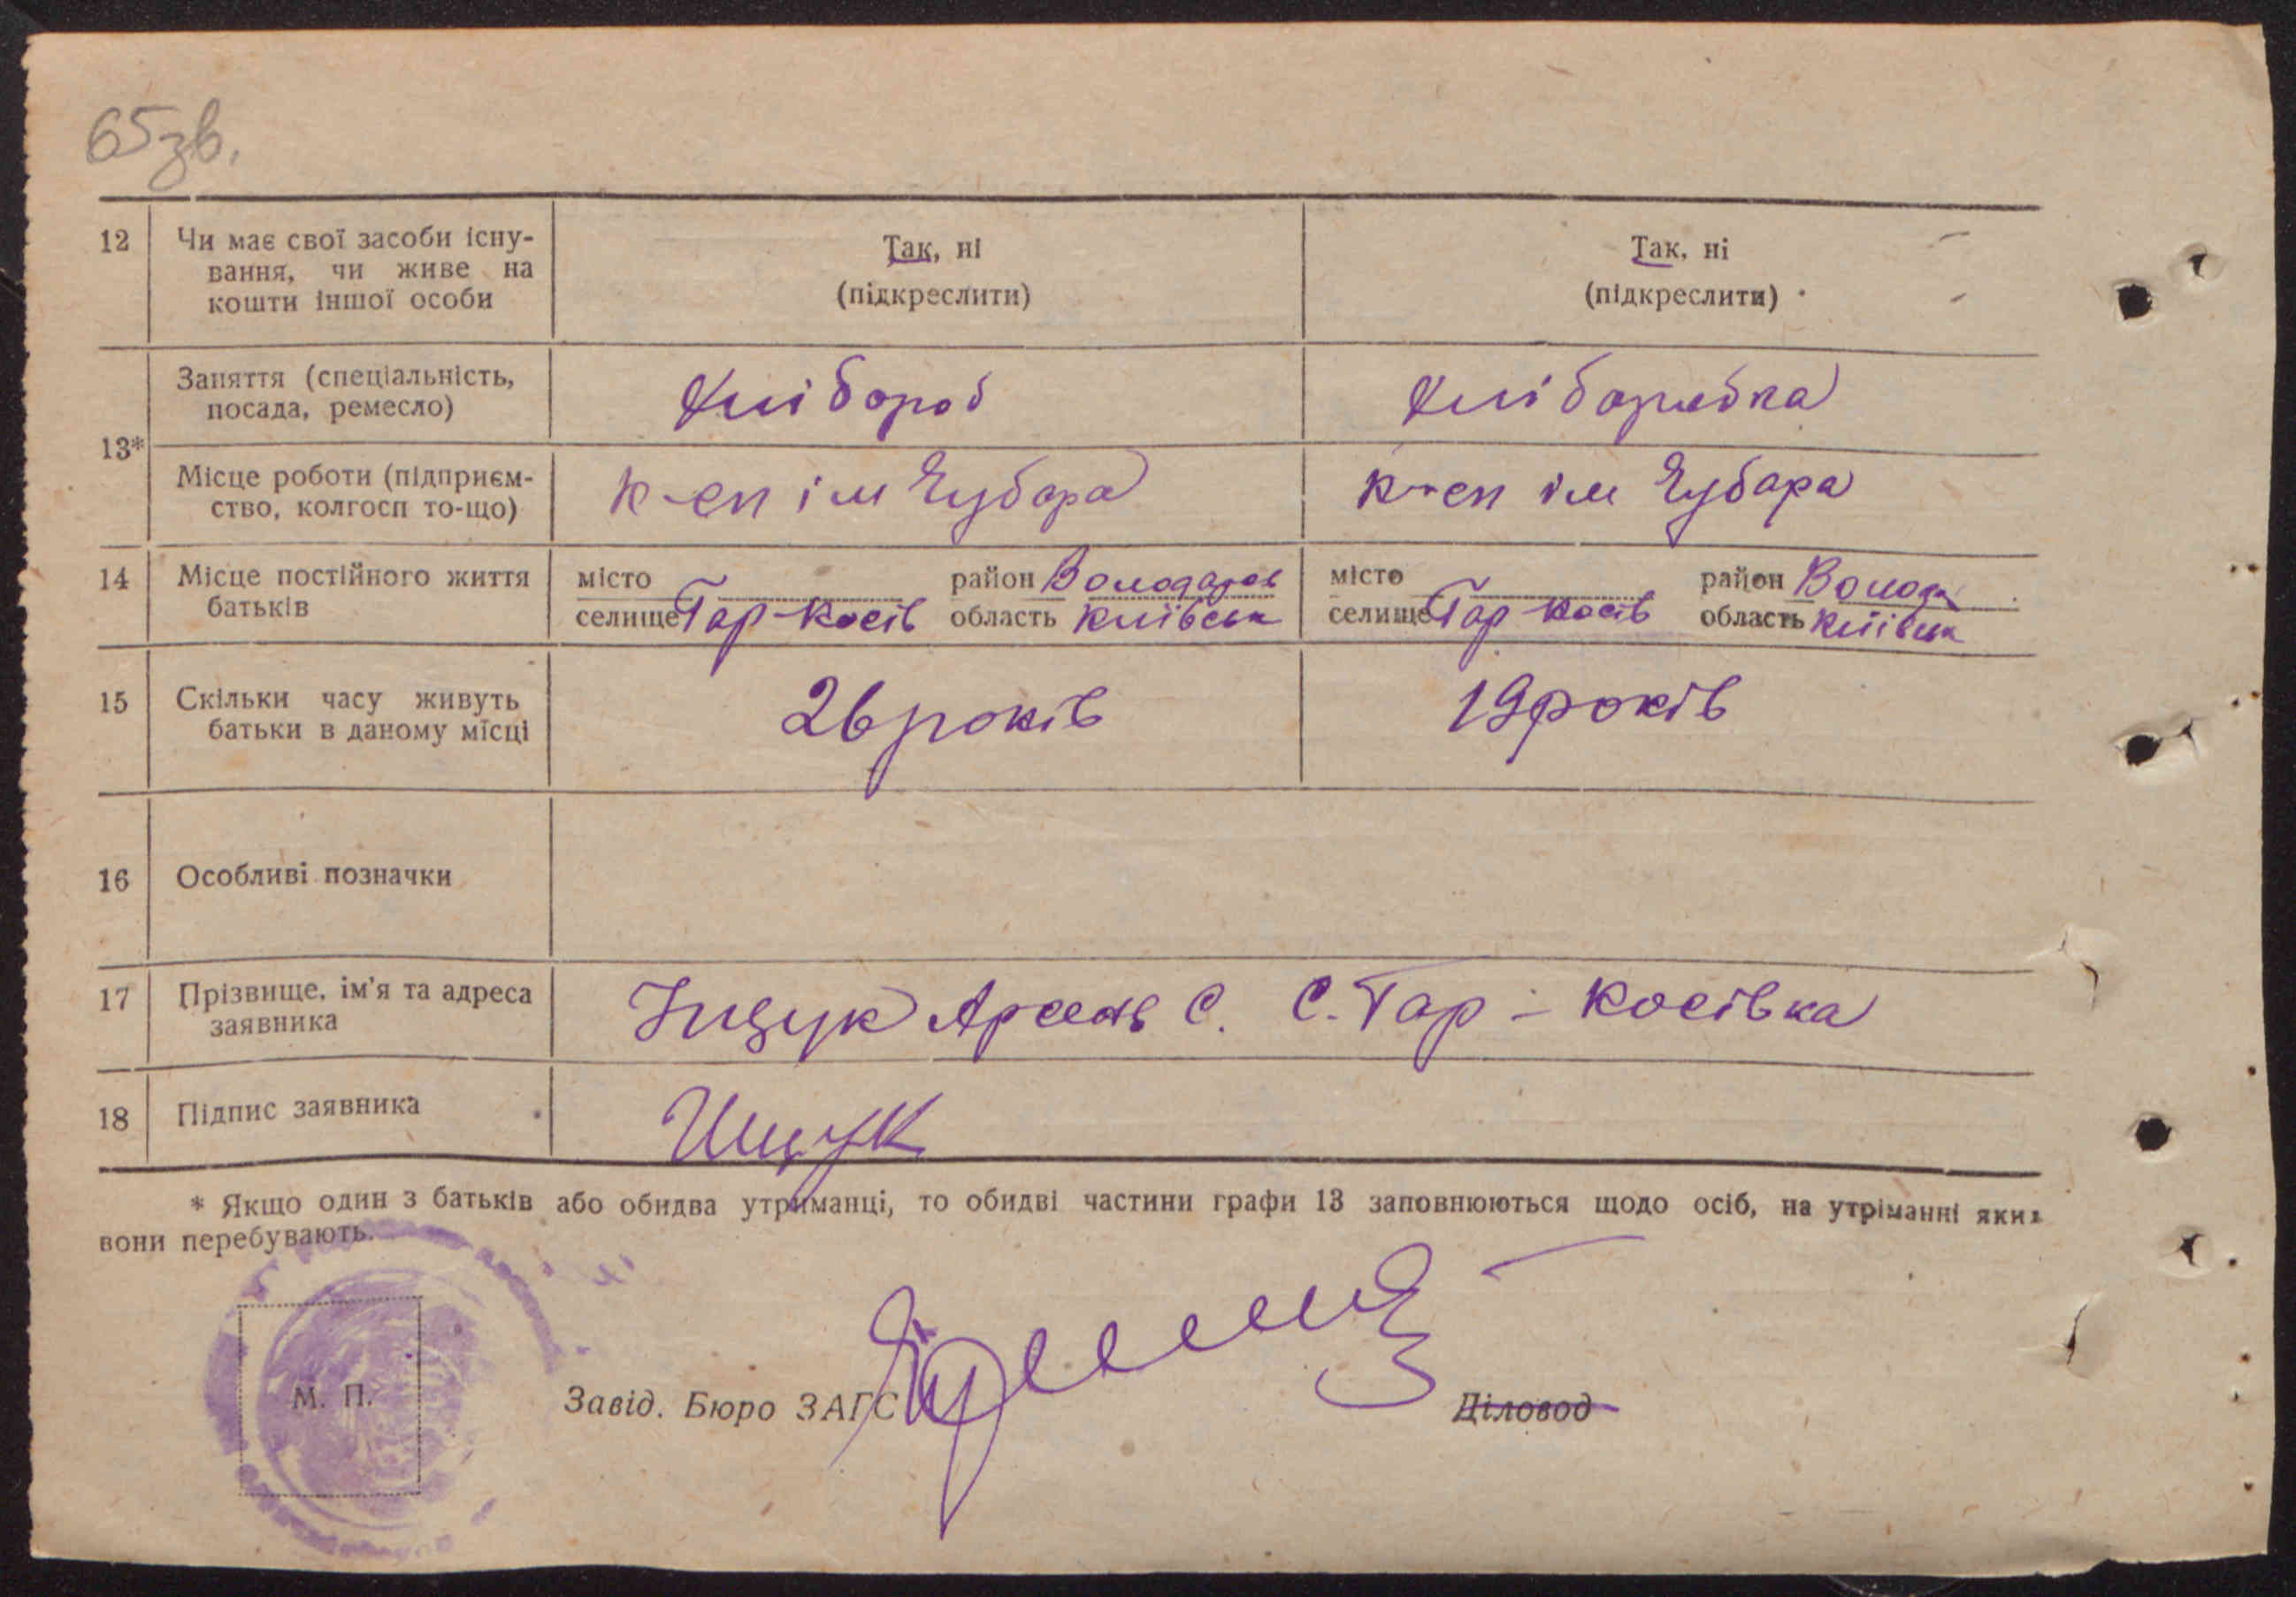 65зв.
12 Чи має свої засоби існу- Так, ні Так, ні
вання, чи живе на (підкреслити) (підкреслити)
кошти іншої особи
13* Заняття (спеціальність, Хлібороб Хліборобка
посада, ремесло)
Місце роботи (підприєм- к-сп ім Чубара к-сп ім Чубара
ство, колгосп то-що)
14 Місце постійного життя місто район Володарськ місто район Волода
батьків селище Тар-Косів область Київськ селище Тар Косів область Київськ
15 Скільки часу живуть 26 років 19 років
батьки в даному місці
16 Особливі позначки
17 Прізвище, ім'я та адреса Іщук Арсень С. С. Тар - Косівка
заявника
18 Підпис заявника Ищук
* Якщо один з батьків або обидва утриманці, то обидві частини графи 13 заповнюються щодо осіб, на утріманні яких
вони перебувають.
М. П.
Завід. Бюро ЗАГС Діловод